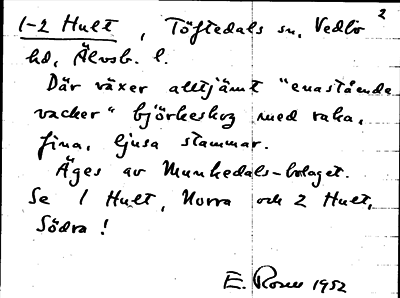 2
1-2 Hult, Töftedals sn, Vedbo
hd, Älvsb. l.
Där växer alltjämt "enastående
vacker" björkeskog med raka,
fina, ljusa stammar.
Äges av Munkedals-bolaget.
Se 1 Hult, Norra och 2 Hult,
Södra!
E. Rosell 1952